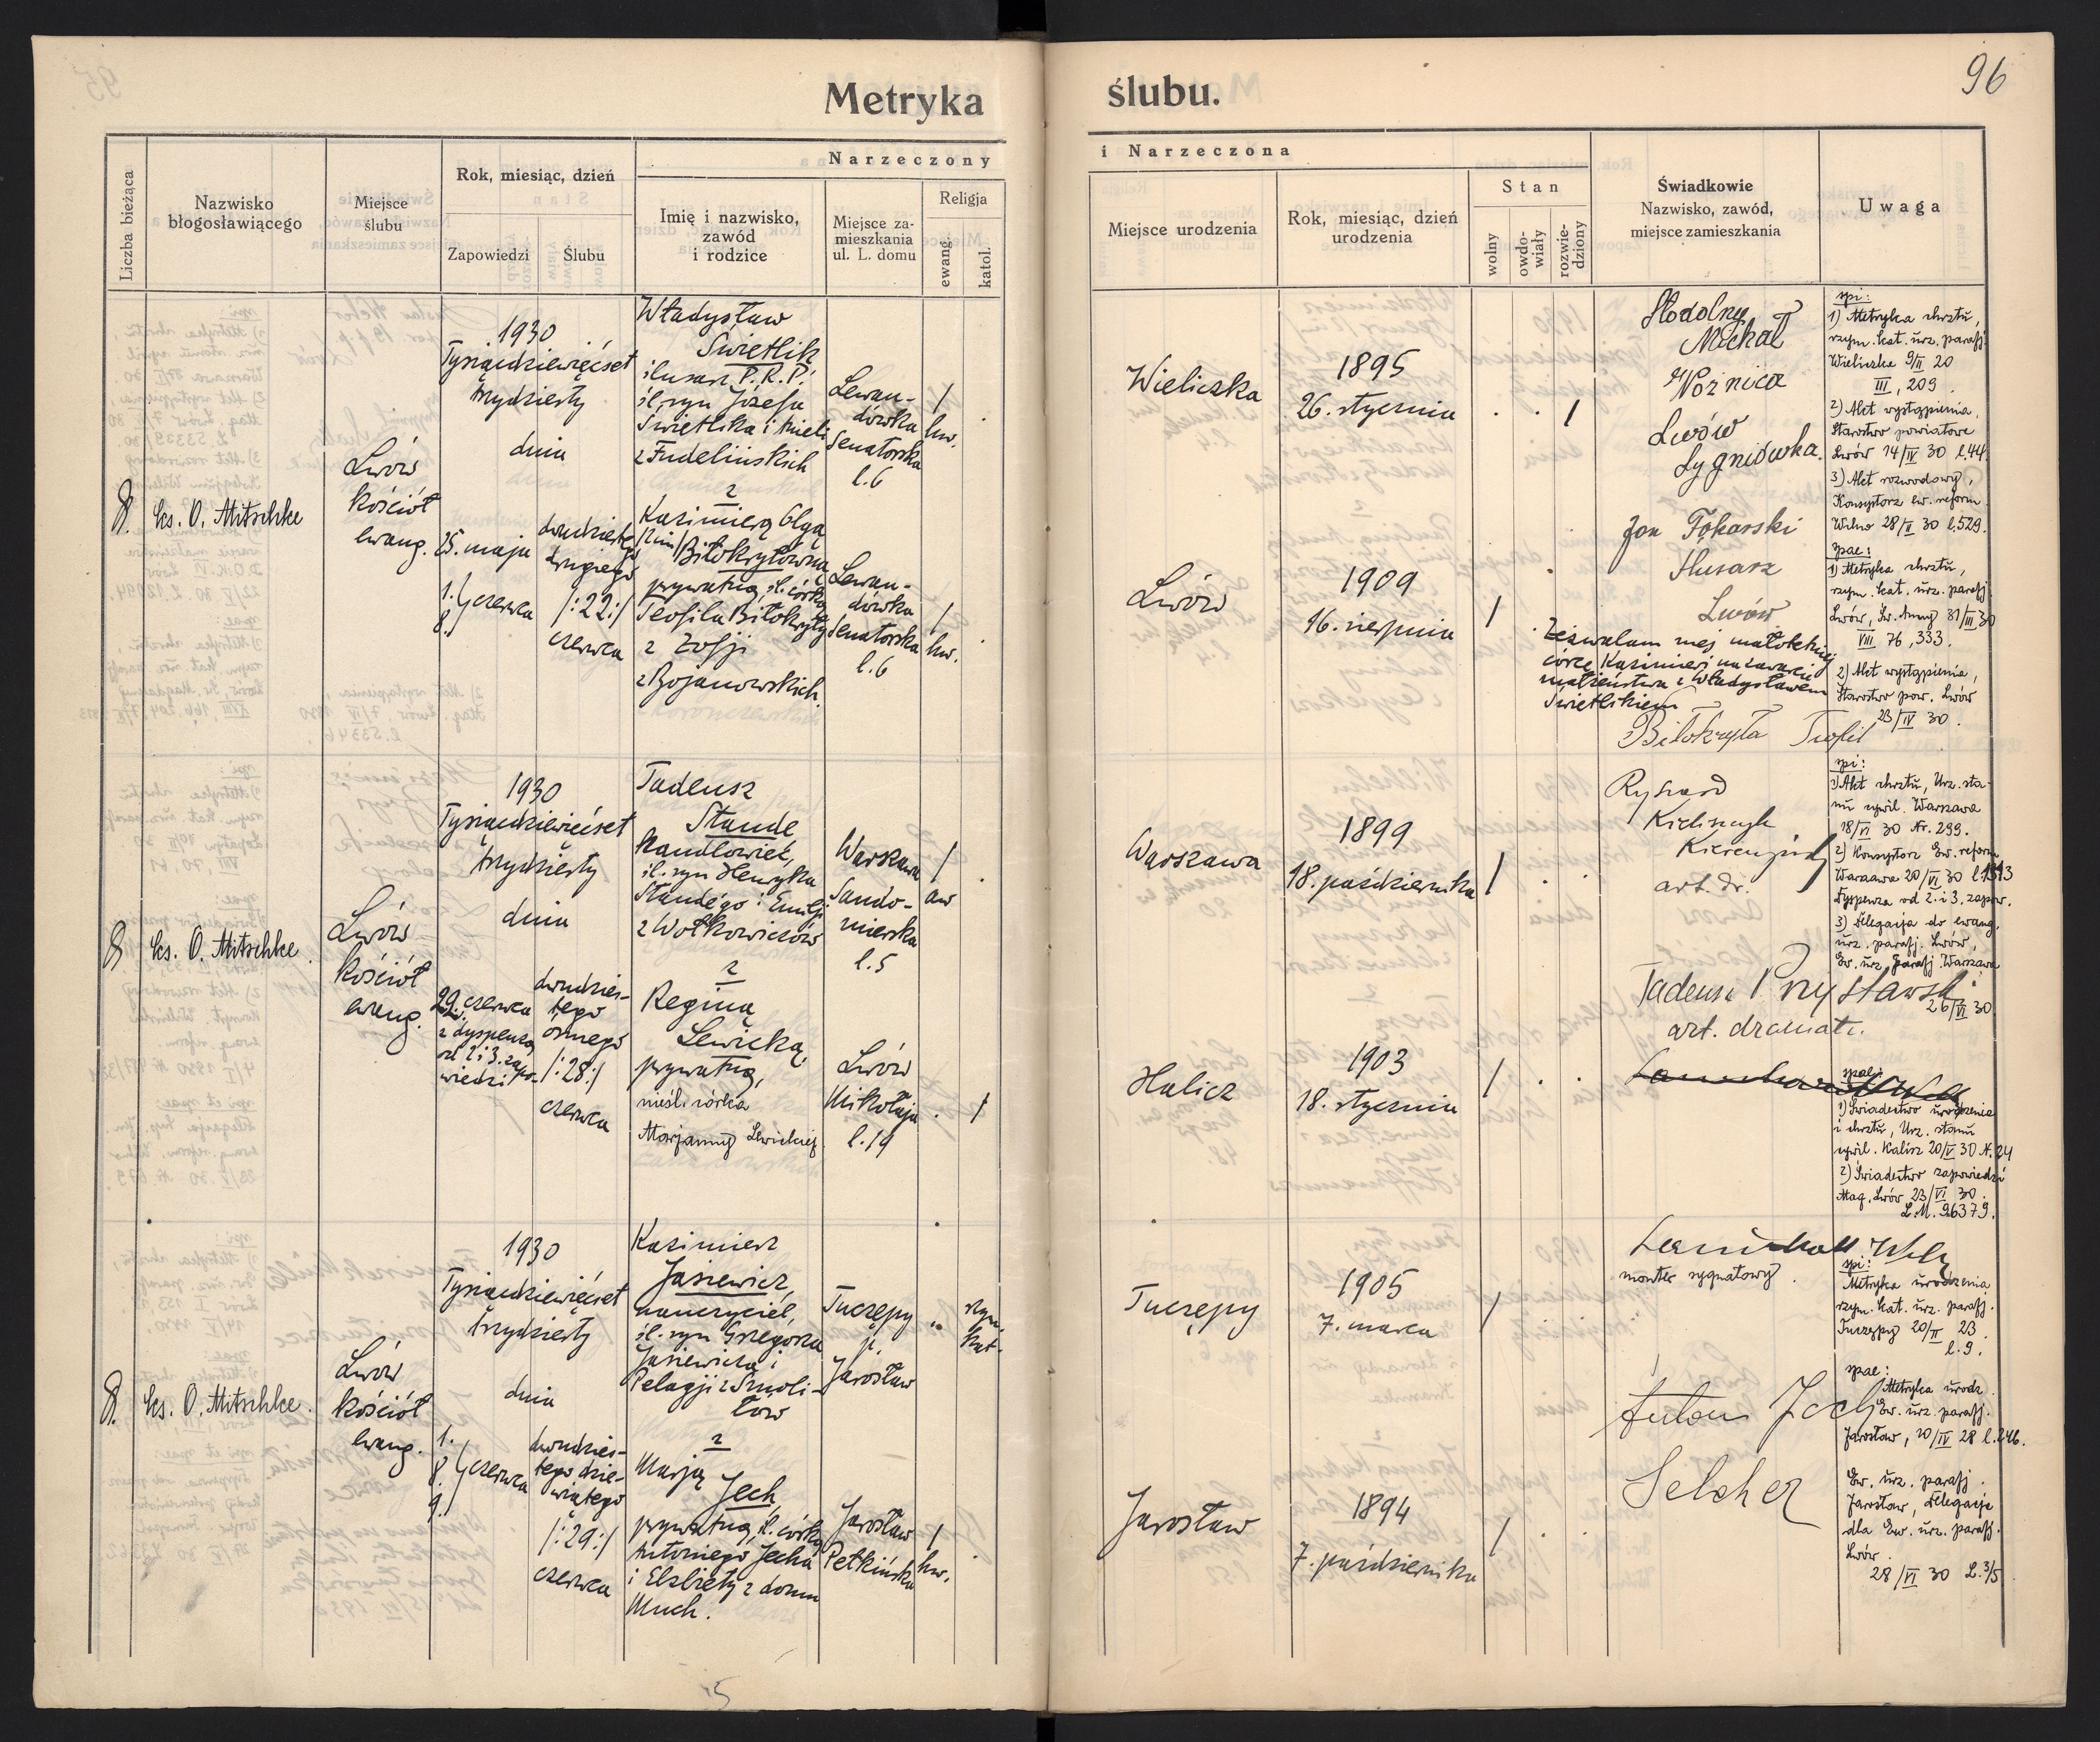 96
Metryka ślubu.
Liczba bieżąca
Nazwisko
błogosławiącego
Miejsce
ślubu
Rok, miesiąc, dzień
Zapowiedzi
Ślubu
Narzeczony i Narzeczona
Imię i nazwisko,
zawód
i rodzice
Miejsce za-
mieszkania
ul. L. domu
Religja
ewang.
katol.
Miejsce urodzenia
Rok, miesiąc, dzień
urodzenia
Stan
wolny
owdo-
wiały
rozwie-
dziony
Świadkowie
Nazwisko, zawód,
miejsce zamieszkania
Uwaga
ks. O. Mitschke
Lwów
kościół
ewang.
1930
Tysiącdziewięćset
trzydziesty
dnia
25. maja
1.
8. czerwca
dwudziestego
drugiego
/:22:/
czerwca
Władysław
Świetlik
ślusarz P.K.P.
śl. syn Józefa
Świetlika i Anieli
z Fudelińskich
z
Kazimierą Olgą
Biłokrytówną
prywatną, śl. córką
Teofila Biłokryty
z Zofji
z Bojanowskich.
Lewan-
dówka
Senatorska
l.6
Lewan-
dówka
Senatorska
l.6
Wieliczka
1895
26. stycznia
Lwów
1909
16. sierpnia
Stodolny
Michał
Woźnica
Lwów
Sygniówka.
Jan Tokarski
Ślusarz
Lwów
Zezwalam mej małoletniej
córce Kazimierze na zawarcie
małżeństwa z Władysławem
Świetlikiem
Biłokryta Teofil
spi:
1) Metryka chrztu,
rzym. kat. urz. parafj.
Wieliczka 9/II 20
III, 209.
2) Akt wystąpienia,
Starostwo powiatowe
Lwów 14/IV 30 l.44
3) Akt rozwodowy,
Konsystorz ew. reform.
Wilno 28/II 30 l.529.
spae:
1) Metryka chrztu,
rzym. kat. urz. parafj.
Lwów, Św. Anny 31/III 30
VIII 76, 333.
2) Akt wystąpienia,
Starostwo pow. Lwów
23/IV 30.
ks. O. Mitschke.
Lwów
kościół
ewang.
1930
Tysiącdziewięćset
trzydziesty
dnia
22. czerwca
z dyspenzą
od 2 i 3. zapo-
wiedzi
dwudzies-
tego
ósmego
/:28:/
czerwca
Tadeusz
Stande
handlowiec,
śl. syn Henryka
Standego i Emilji
z Wołkowiczów
z
Reginą
Lewicką,
prywatną,
nieśl. córka
Marjanny Lewickiej.
Warszawa
Sando-
mierska
l.5
Lwów
Mikołaja
l.19
Warszawa
1899
18. października
Halicz
1903
18. stycznia
Ryszard
art. dr.
Tadeusz Przystawski
art. dramat.
spi:
1) Akt chrztu, Urz. sta-
nu cywil. Warszawa
18/VI 30 Nr. 299.
2) Konsystorz Ew. reform
Warszawa 20/VI 30 l.1513
Dyspenza od 2. i 3. zapow.
3) Delegacja do ewang.
urz. parafj. Lwów,
Ew. urz. parafj. Warszawa
26/VI 30
spae:
1) Świadectwo urodzenia
i chrztu, Urz. stanu
cywil. Kalisz 20/V 30 N. 24
2) Świadectwo zapowiedzi
Mag. Lwów 23/VI 30.
L.M. 96379.
ks. O. Mitschke.
Lwów
kościół
ewang.
1930
Tysiącdziewięćset
trzydziesty
dnia
1.
8. czerwca
9.
dwudzies-
tego dzie-
wiątego
/:29:/
czerwca
Kazimierz
Jasiewicz,
nauczyciel,
śl. syn Grzegorza
Jasiewicza i
Pelagji z Smoli-
łów
z
Marją
Jech,
prywatną, śl. córką
Antoniego Jecha
i Elżbiety z domu
Much.
Tuczępy
p.
Jarosław
rzym.
kat.
Jarosław
Pełkińska
Tuczępy
1905
7. marca
Jarosław
1894
7. października
monter sygnałowy.
Anton Jech
Selcher
spi:
Metryka urodzenia
rzym. kat. urz. parafj.
Tuczępy 20/II 23.
l.9.
spae:
Metryka urodz.
Ew. urz. parafj.
Jarosław, 10/IV 28 l.246.
Ew. urz. parafj.
Jarosław, Delegacja
dla Ew. urz. parafj.
Lwów.
28/VI 30 L.3/5